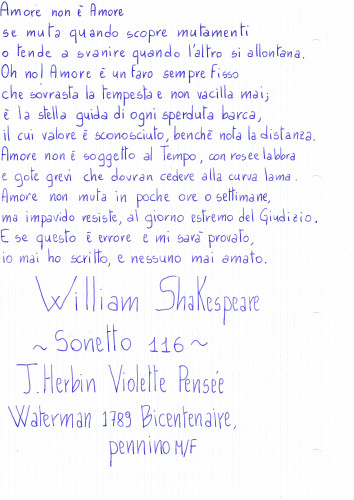 Amore non è Amore
se muta quando scopre mutamenti
o tende a svanire quando l'altro si allontana.
Oh no! Amore è un faro sempre fisso
che sovrasta la tempesta e non vacilla mai;
è la stella guida di ogni sperduta barca,
il cui valore è sconosciuto, benchè nota la distanza.
Amore non è soggetto al Tempo, con rosee labbra
e gote grevi che dovran cedere alla curva lama.
Amore non muta in poche ore o settimane,
ma impavido resiste, al giorno estremo del Giudizio.
E se questo è errore e mi sarà provato,
io mai ho scritto, e nessuno mai amato.
William Shakespeare
~ Sonetto 116 ~
J. Herbin Violette Pensée
Waterman 1789 Bicentenaire,
pennino M/F